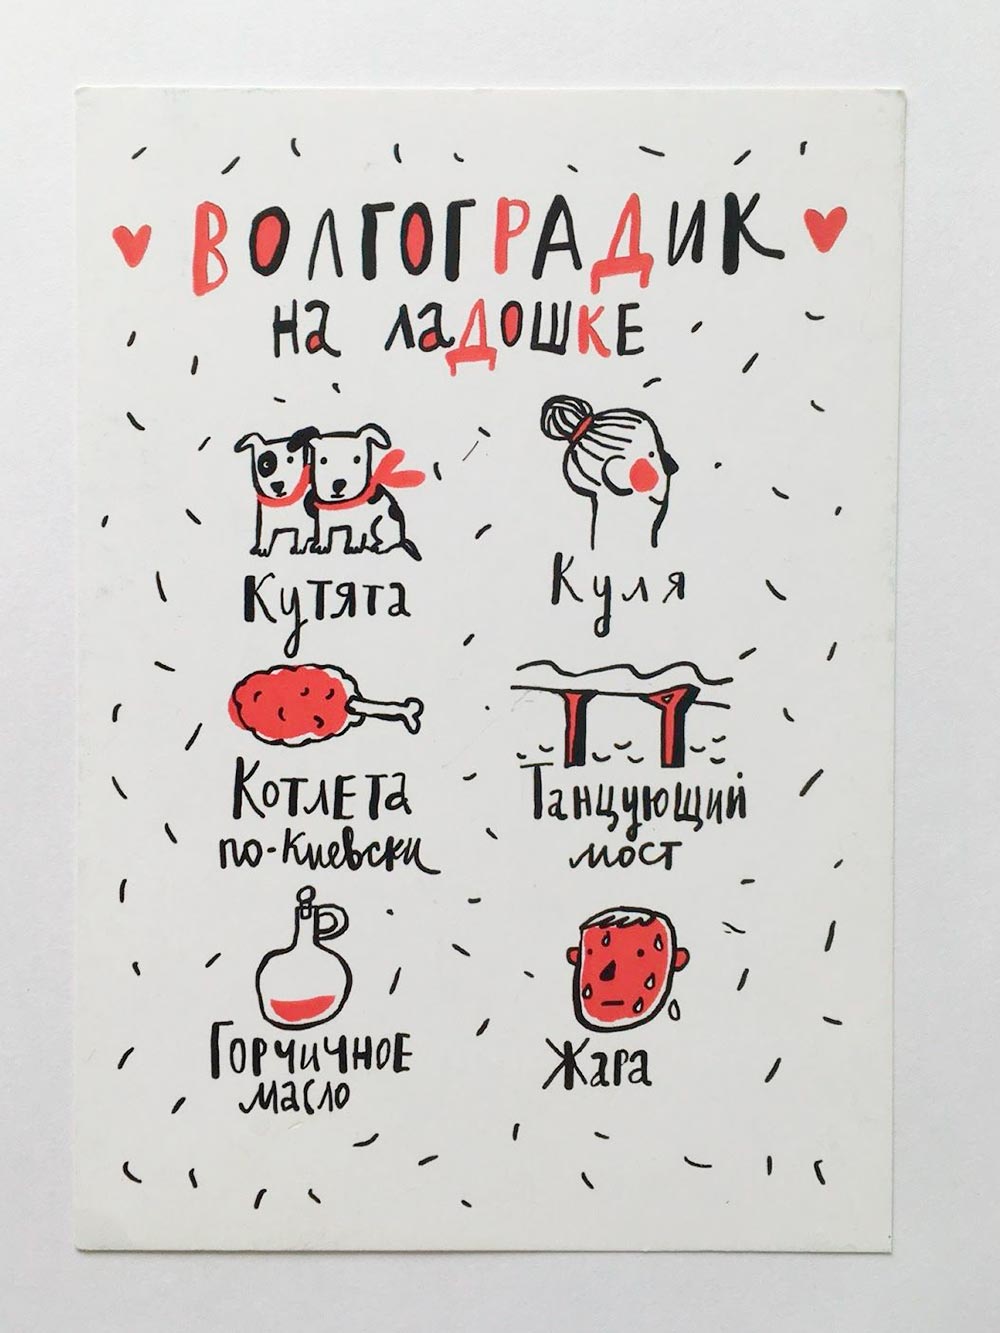 ВОЛГОГРАДИК
на ладошке
Кутята
Куля
Котлета
по-Киевски
Танцующий
мост
Горчичное
масло
Жара